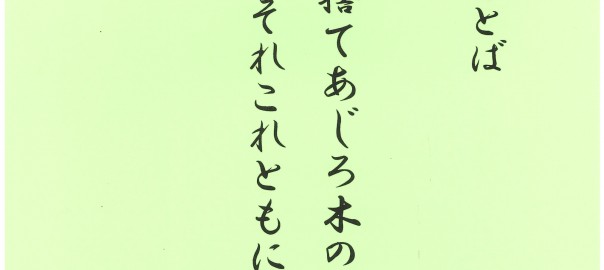 とば
捨てあじろ木の
それこれともに